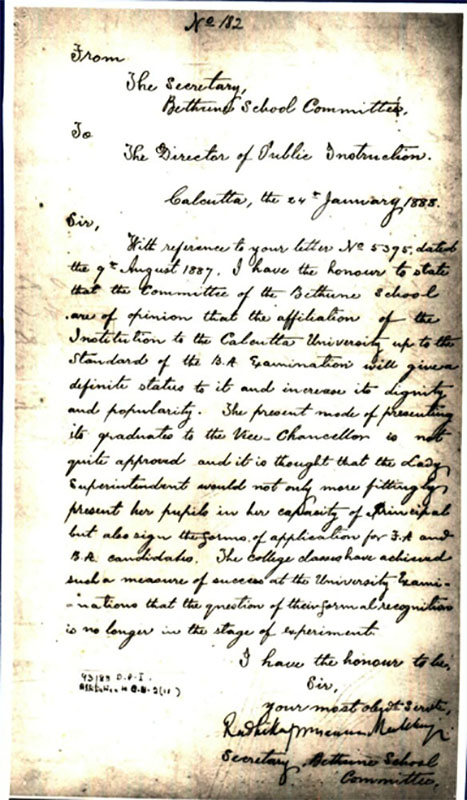 No 182
From
The Secretary,
Bethune School Committee.
To
The Director of Public Instruction.
Calcutta, the 24th January 1888.
Sir,
With reference to your letter No 5395, dated
the 9th August 1887. I have the honour to state
that the Committee of the Bethune School
are of opinion that the affiliation of the
Institution to the Calcutta University up to the
Standard of the B.A. Examination will give a
definite status to it and increase its dignity
and popularity. The present mode of presenting
its graduates to the Vice-Chancellor is not
quite approved and it is thought that the Lady
Superintendent would not only more fittingly
present her pupils in her capacity of Principal
but also sign the forms of application for F.A. and
B.A. candidates. The college classes have achieved
such a measure of success at the University Exami-
-nations that the question of their formal recognition
is no longer in the stage of experiment.
I have the honour to be,
Sir,
your most obdt Servt,
Secretary Bethune School
Committee.
D.P.I.